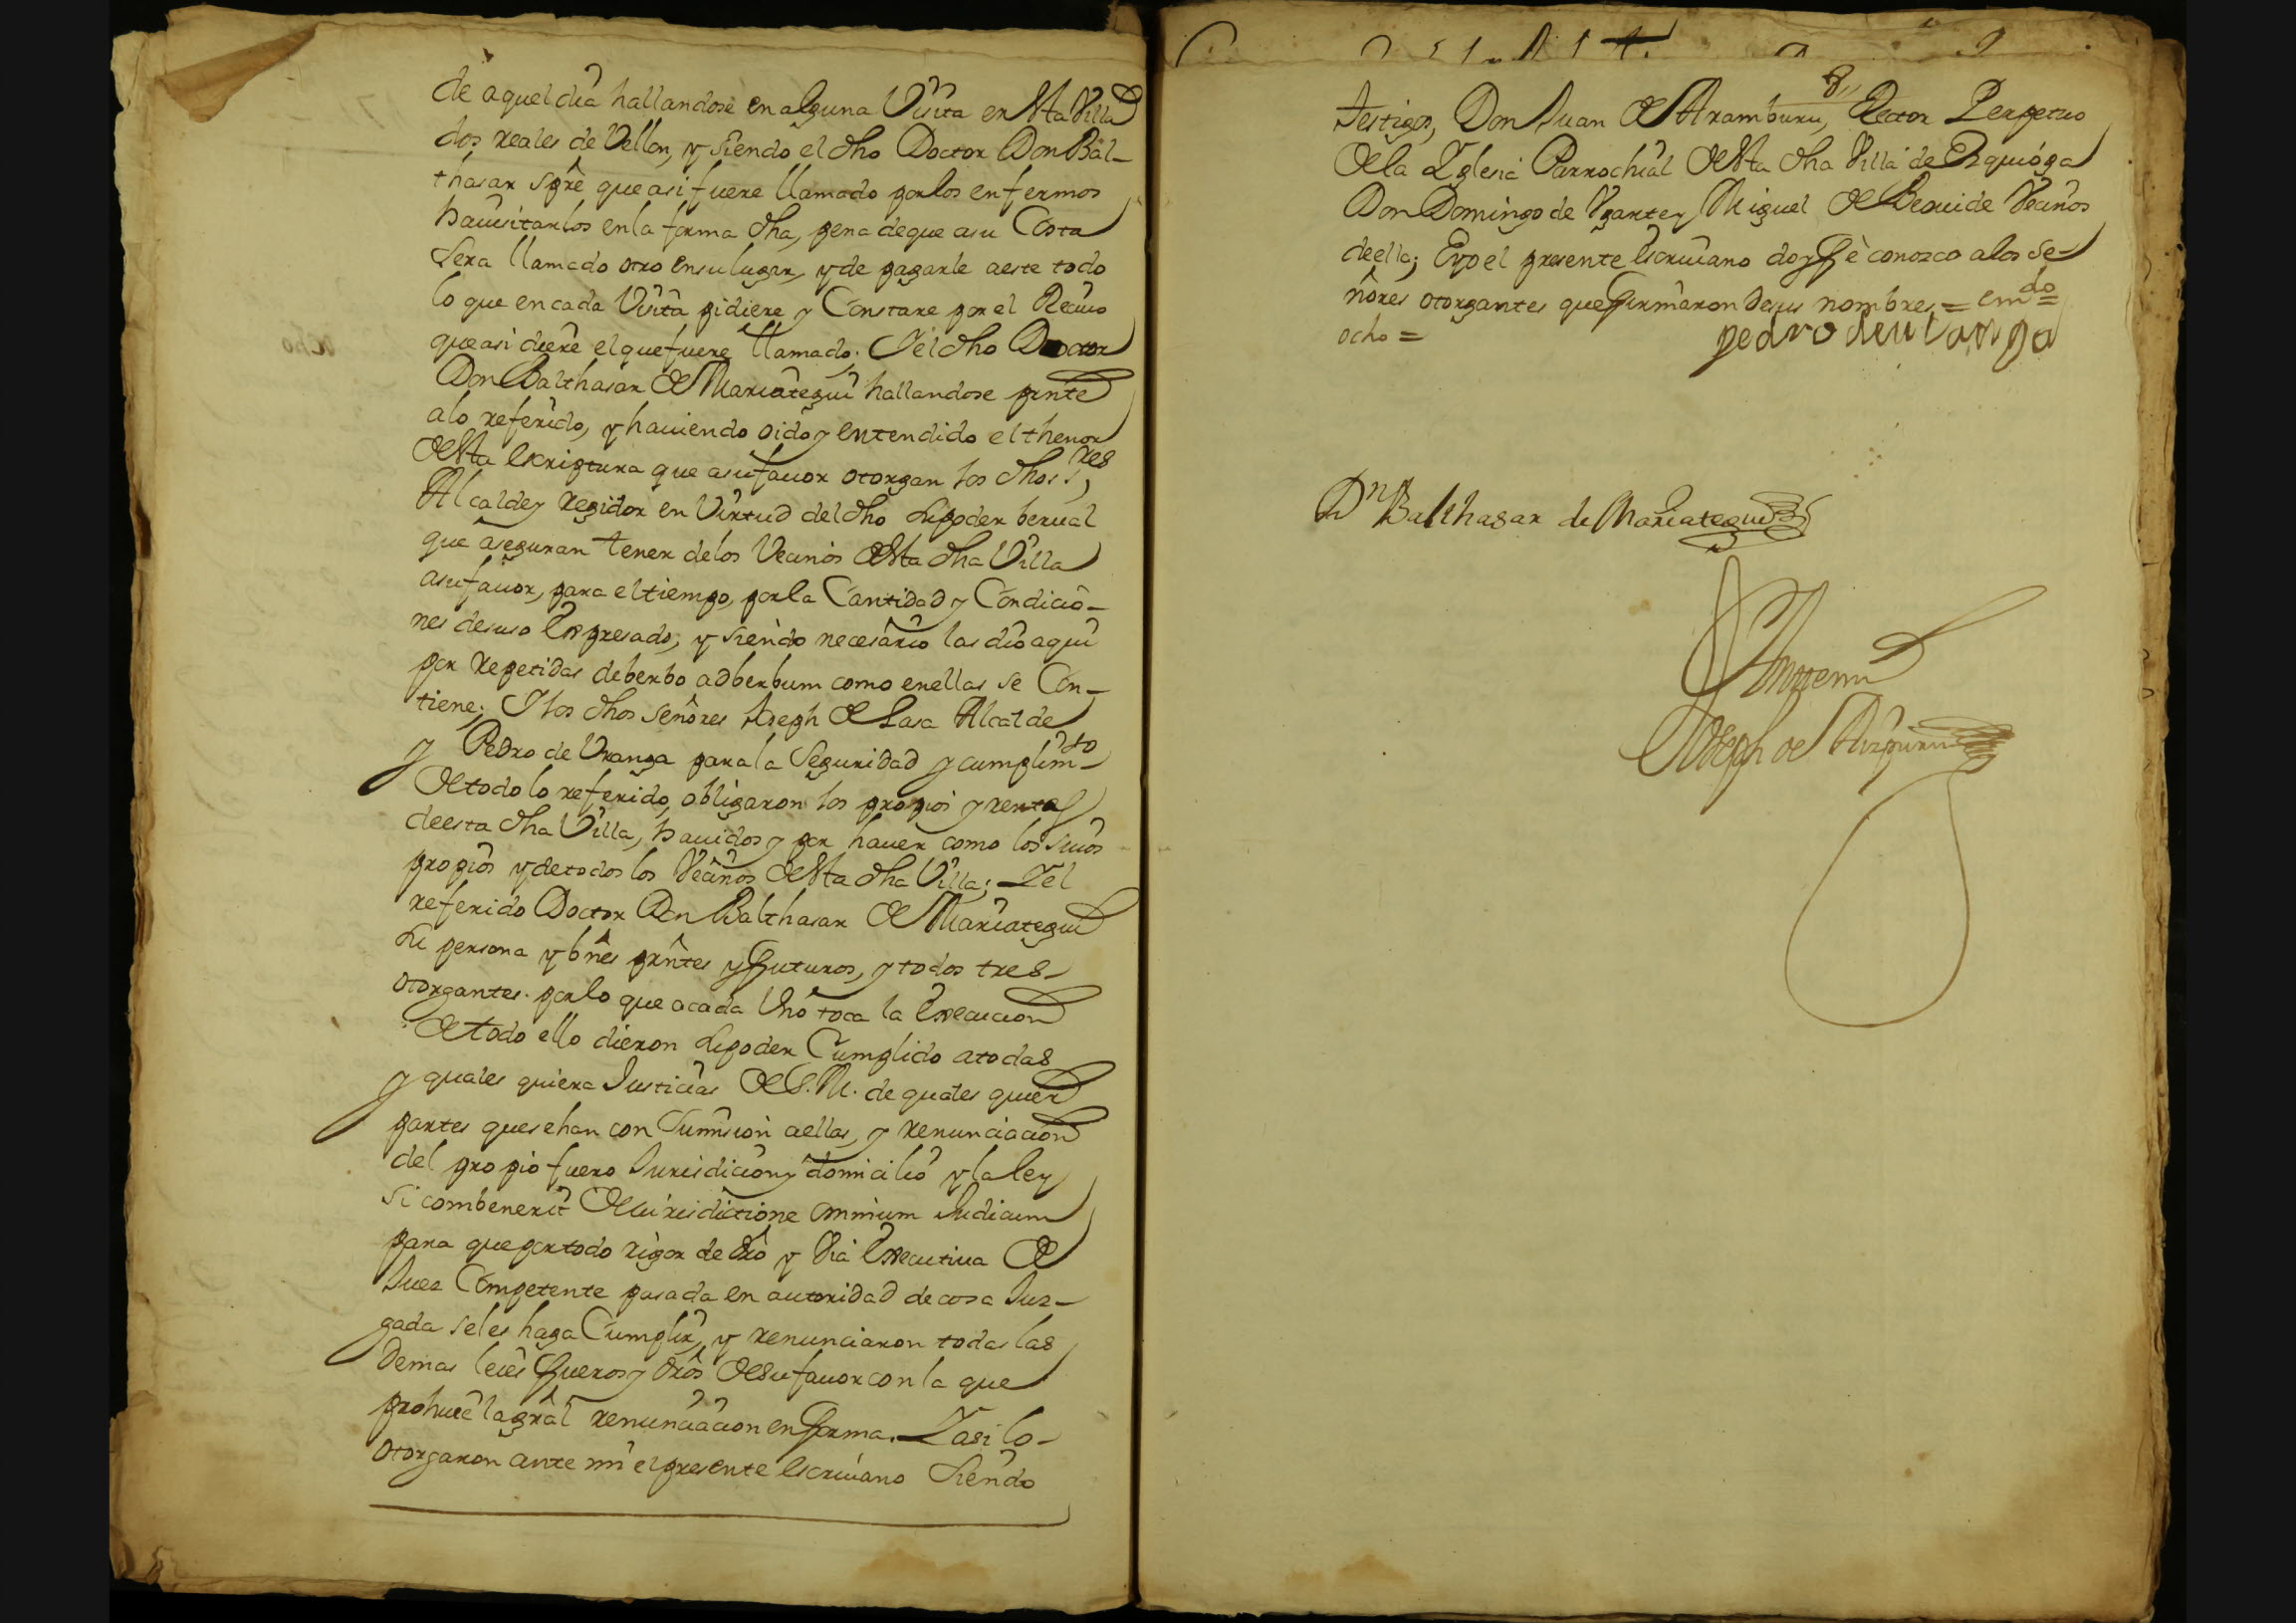 de aquel dia hallandose en alguna Visita en esta Villa
dos reales de Vellon, y siendo el dho Doctor Don Bal-
thasar spre que asi fuere llamado por los enfermos
ha visitarlos en la forma dha, pena de que a su Costa
sera llamado otro en su lugar, y de pagarle a este todo
lo que en cada Visita pidiere y Constare por el Reciuo
que asi diere el que fuere llamado. I el dho Doctor
Don Balthasar de Mariategui hallandose prnte
a lo referido, y hauiendo oido y entendido el thenor
de esta escriptura que a su fauor otorgan los dhos sres,
Alcalde y Regidor en Virtud del dho su poder berual
que aseguran tener de los Vecinos de esta dha Villa
a su fauor, para el tiempo, por la Cantidad y Condicio-
nes de suso Expresado, y siendo necesario las dio aqui
por repetidas de berbo adberbum como en ellas se Con-
tiene; I los dhos señores Joseph de Lasa Alcalde
y Pedro de Vranga para la Seguridad y cumplimto
de todo lo referido, obligaron los propios y rentas
de esta dha Villa, hauidos y por hauer como los suios
propios y de todos los Vecinos de esta dha Villa; I el
referido Doctor Don Balthasar de Mariategui
su persona y bnes prntes y futuros, y todos tres
otorgantes por lo que a cada Vno toca la Execucion
de todo ello dieron su poder Cumplido a todas
y quales quiera Justicias de S. M. de quales quier
partes que sehan con Sumision a ellas, y renunciacion
del propio fuero Jurisdicion y domicilio y la ley
si combenerit de Jurisdictione omnium Judicum
para que por todo rigor de dro y Via Executiua de
Juez Competente pasada en autoridad de cosa Juz-
gada se les haga Cumplir, y renunciaron todas las
demas leies fueros y dros de su fauor con la que
prohiue la gral renunciacion en forma. I asi lo
otorgaron ante mi el presente escriuano siendo
8
testigos, Don Juan de Aramburu, Rector Perpetuo
de la Yglesia Parrochial de esta dha Villa de Ezquioga
Don Domingo de Vgarte y Miguel de Beguide Vecinos
de ella; E yo el presente escriuano doy fè conozco a los se-
ñores otorgantes que firmaron de sus nombres = emdo =
ocho =
pedro deuranga
Dn Balthasar de Mariategui
Ante mi
Joseph de Aizpuru